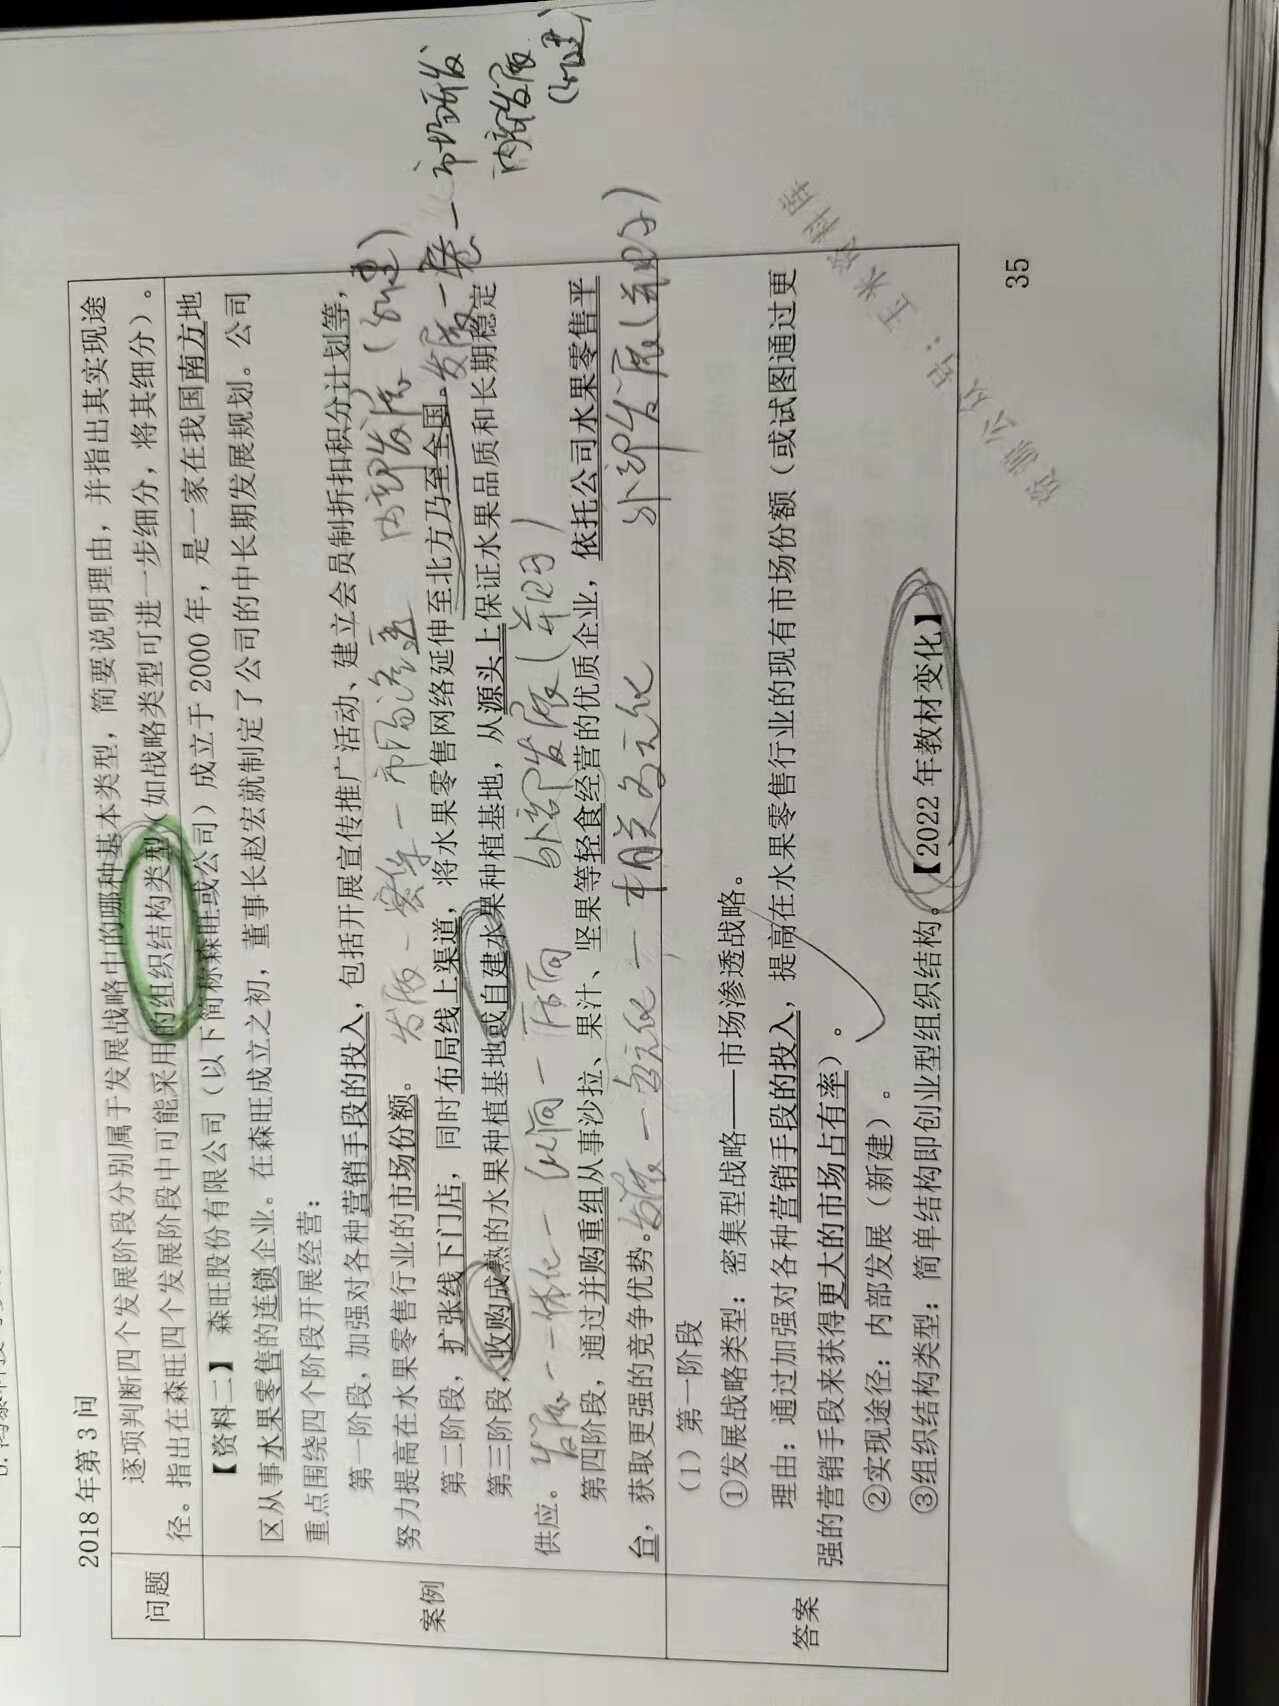 2018 年第 3 问
问题
逐项判断四个发展阶段分别属于发展战略中的哪种基本类型，简要说明理由，并指出其实现途
径。指出在森旺四个发展阶段中可能采用的组织结构类型（如战略类型可进一步细分，将其细分）。
案例
【资料二】 森旺股份有限公司（以下简称森旺或公司）成立于 2000 年，是一家在我国南方地
区从事水果零售的连锁企业。在森旺成立之初，董事长赵宏就制定了公司的中长期发展规划。公司
重点围绕四个阶段开展经营：
第一阶段，加强对各种营销手段的投入，包括开展宣传推广活动、建立会员制折扣积分计划等，
努力提高在水果零售行业的市场份额。
发展一密集一市场渗透 内部发展（新建）
第二阶段，扩张线下门店，同时布局线上渠道，将水果零售网络延伸至北方乃至全国。
发展一密一市场开发
内部发展
（新建）
第三阶段，收购成熟的水果种植基地或自建水果种植基地，从源头上保证水果品质和长期稳定
供应。
发展一一体化一纵向一后向 外部发展（并购）
第四阶段，通过并购重组从事沙拉、果汁、坚果等轻食经营的优质企业，依托公司水果零售平
台，获取更强的竞争优势。
发展一多元化一相关多元化 外部发展（并购）
答案
（1）第一阶段
①发展战略类型：密集型战略——市场渗透战略。
理由：通过加强对各种营销手段的投入，提高在水果零售行业的现有市场份额（或试图通过更
强的营销手段来获得更大的市场占有率）。
②实现途径：内部发展（新建）。
③组织结构类型：简单结构即创业型组织结构。【2022 年教材变化】
35
资源公众号：玉米资料库